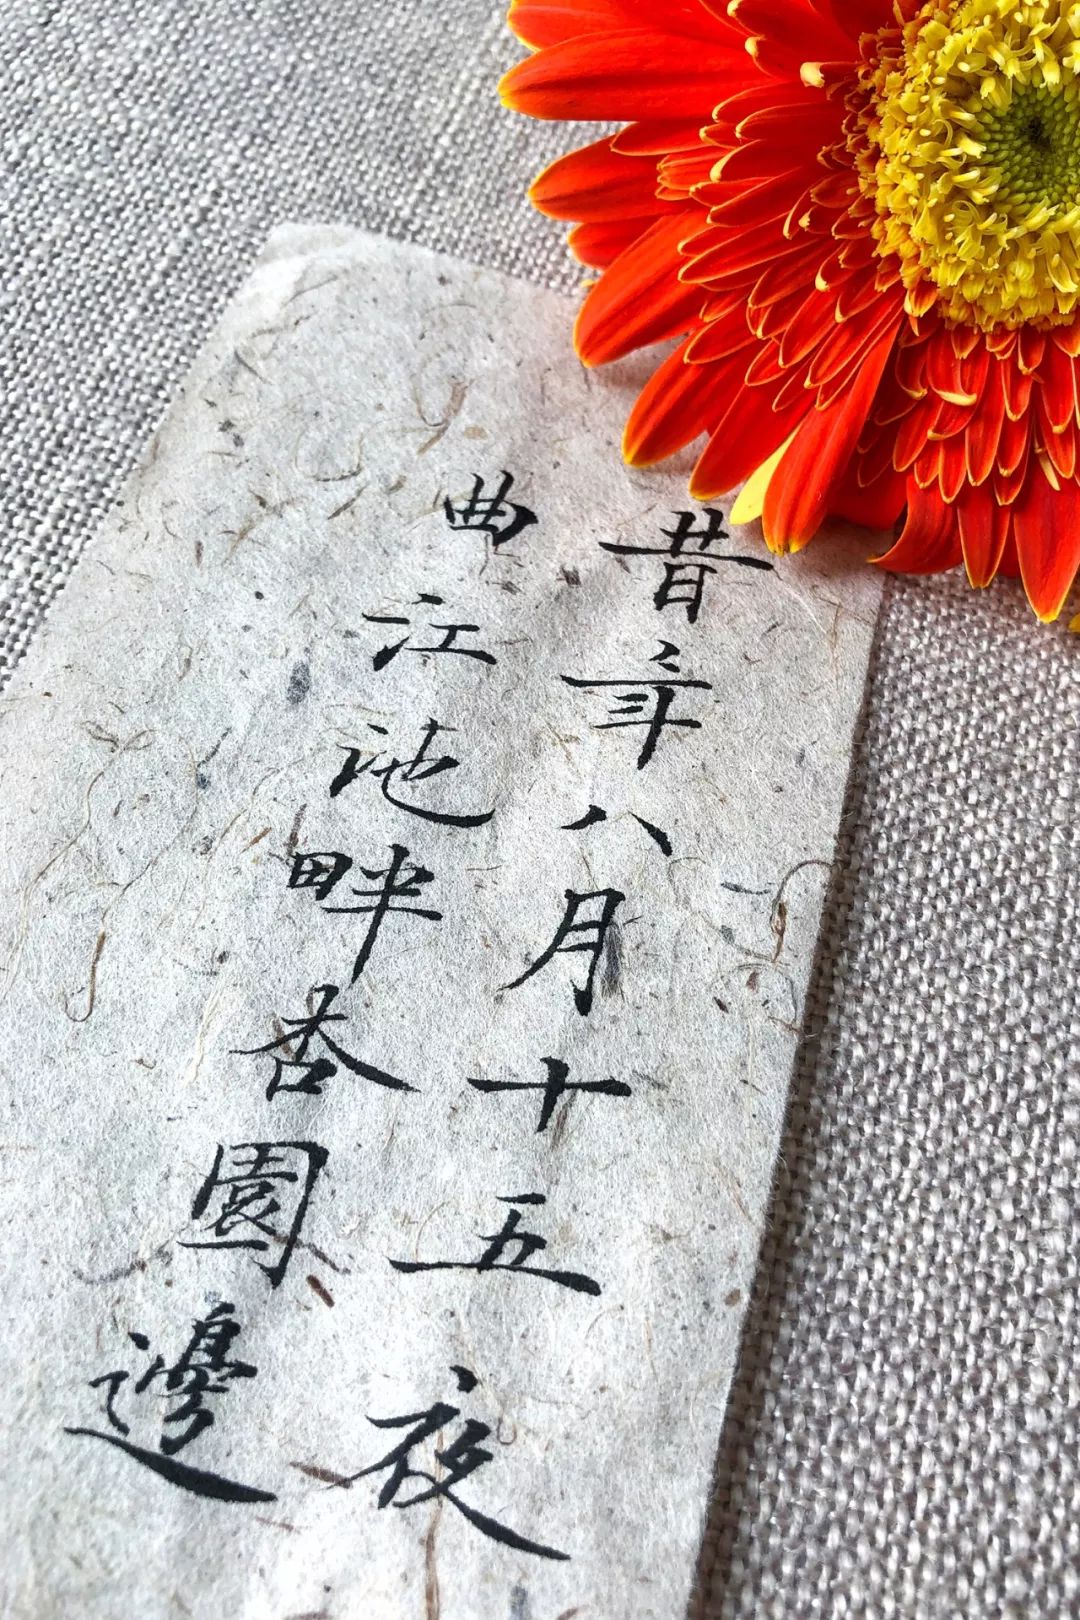 昔年八月十五夜
曲江池畔杏園邊